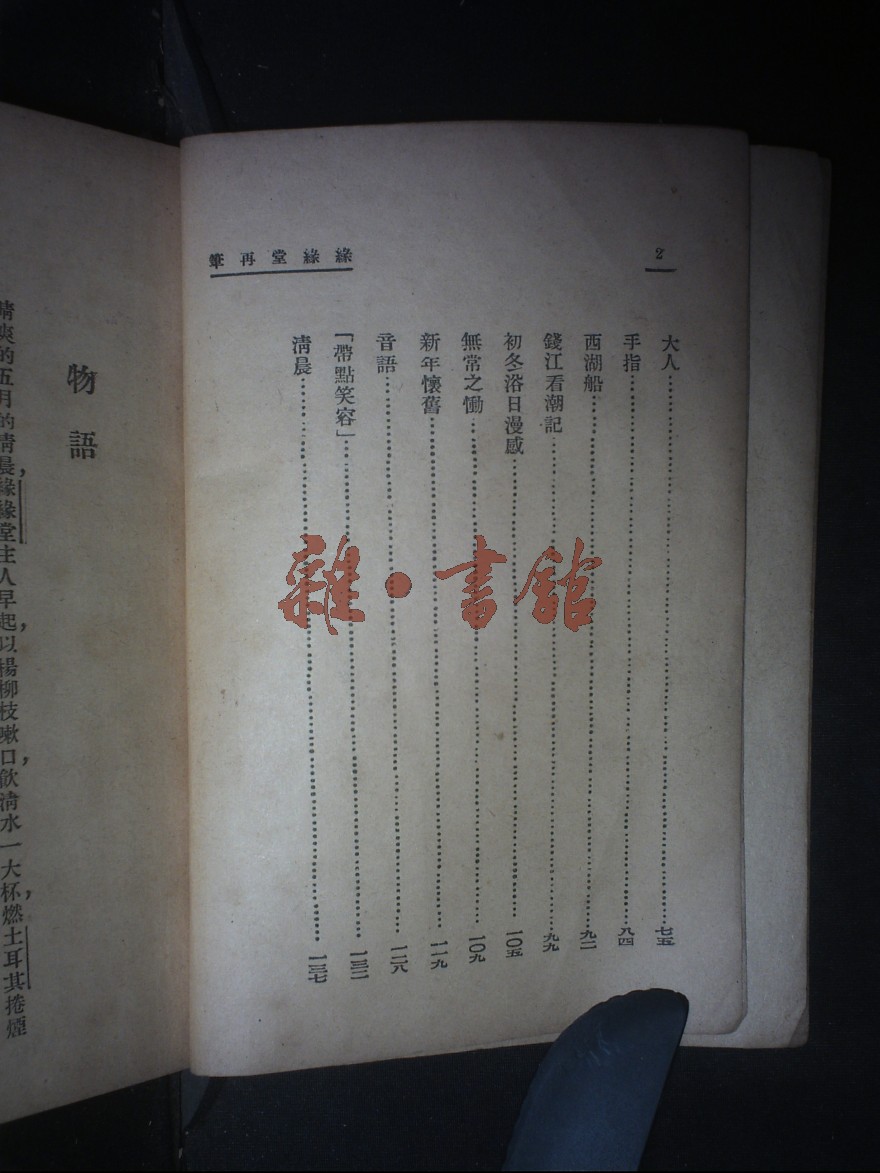 2
緣緣堂再筆
大人……七五
手指……八四
西湖船……九二
錢江看潮記……九九
初冬浴日漫感……一〇五
無常之慟……一〇九
新年懷舊……一一九
音語……一二八
「帶點笑容」……一三二
清晨……一三七
雜·書館
物語
晴爽的五月的清晨，緣緣堂主人早起，以楊柳枝嗽口，飲清水一大杯，燃土耳其捲煙